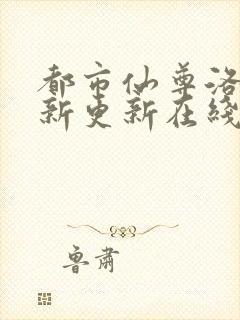 都市仙尊洛
新更新在线
鲁肃